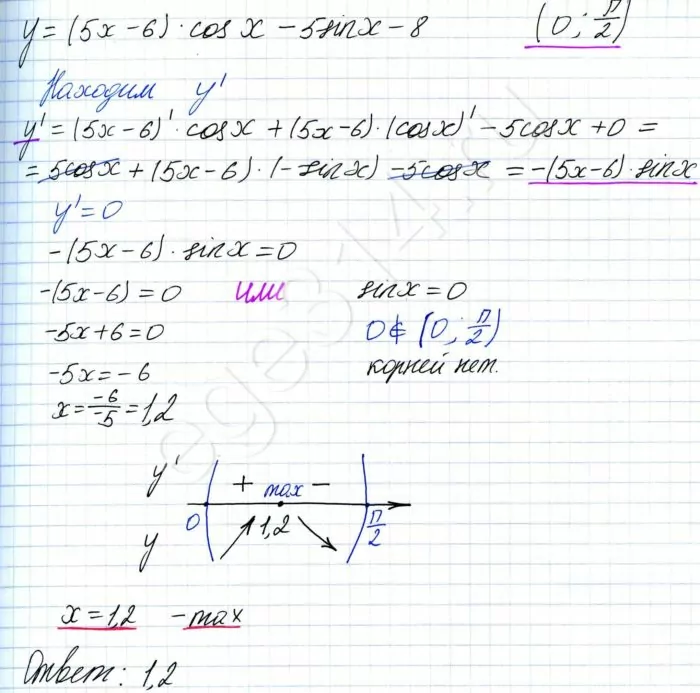 y=(5x-6)·cos x-5sinx-8 (0; П/2)
Находим y'
y'=(5x-6)'·cosx+(5x-6)·(cosx)'-5cosx+0=
=5cosx+(5x-6)·(-sinx)-5cosx=-(5x-6)·sinx
y'=0
-(5x-6)·sinx=0
-(5x-6)=0 или sinx=0
-5x+6=0 0∉(0; П/2)
-5x=-6 корней нет.
x=-6/-5=1,2
y' + max -
0 1,2 П/2
y
x=1,2 -max
Ответ: 1,2
ege314.ru